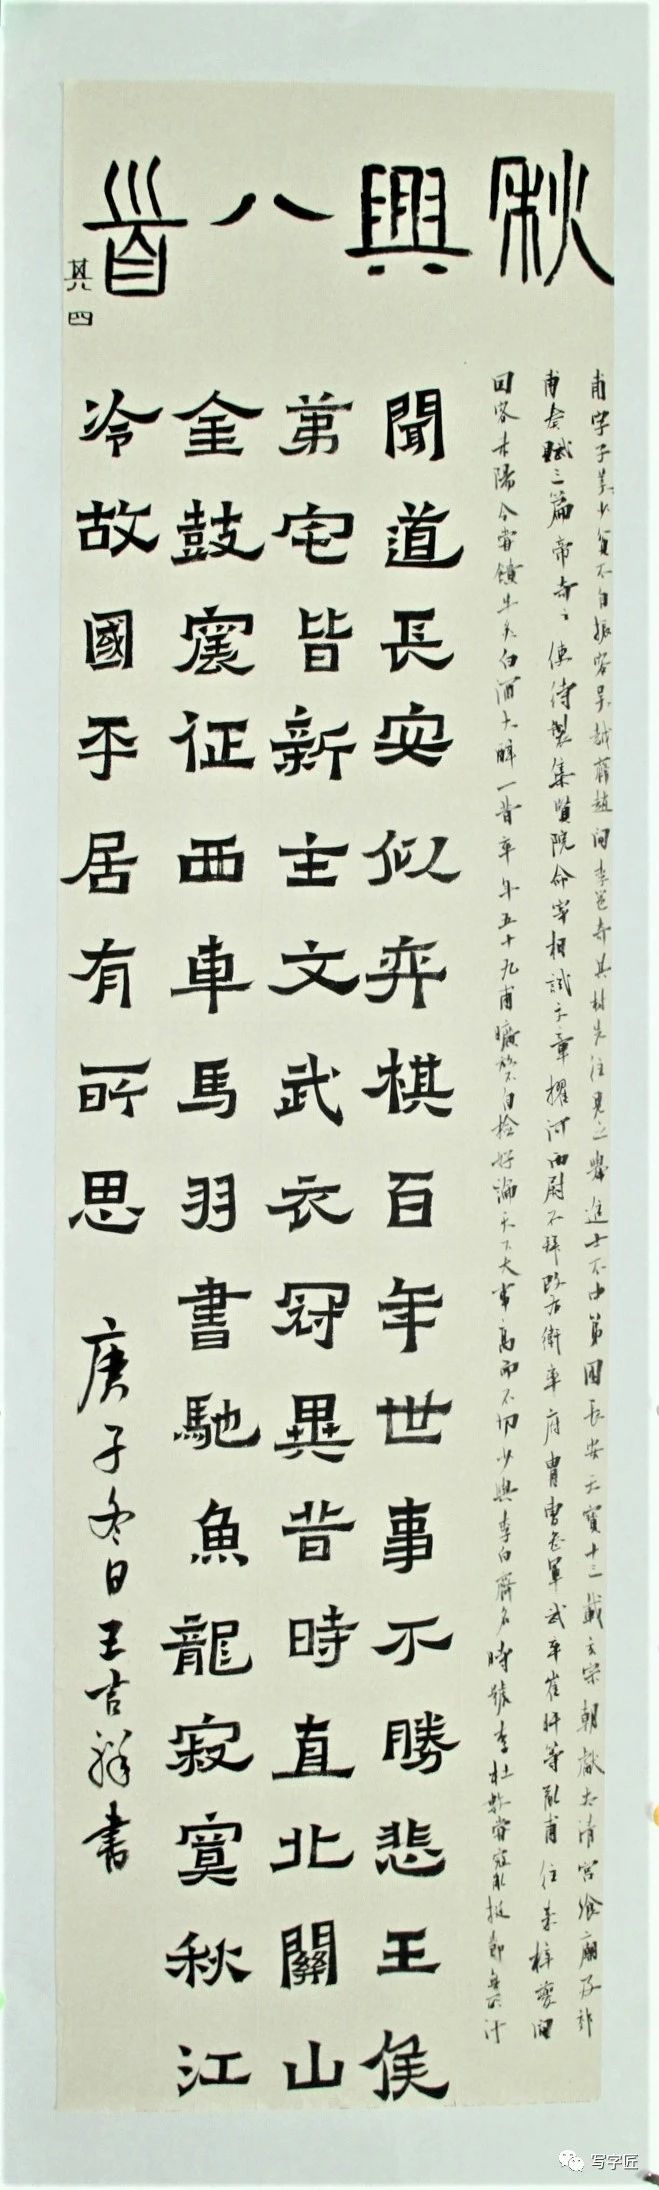 秋興八首
其四
甫字子美少貧不自振客吳越齊趙間李邕奇其材先往見之舉進士不中第困長安天寶十三載玄宗朝獻太清宮饗廟及郊
甫奏賦三篇帝奇之使待製集賢院命宰相試文章擢河西尉不拜改右衛率府胄曹參軍武卒崔旰等亂甫往來梓夔間
回客耒陽令嘗饋牛炙白酒大醉一昔卒年五十九甫曠放不自檢好論天下大事高而不切少與李白齊名時號李杜數嘗寇亂挺節無所汙
聞道長安似弈棋百年世事不勝悲王侯
第宅皆新主文武衣冠異昔時直北關山
金鼓震征西車馬羽書馳魚龍寂寞秋江
冷故國平居有所思
庚子冬日王吉祥書
写字匠